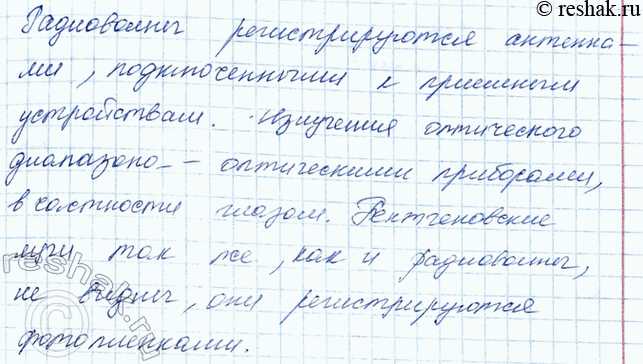 © reshak.ru
Радиоволны регистрируются антенна-
ми, подключенными к приемным
устройствам. Излучения оптического
диапазона - оптическими приборами,
в частности глазом. Рентгеновские
лучи так же, как и радиоволны,
не видны, они регистрируются
фотопленками.
reshak.ru